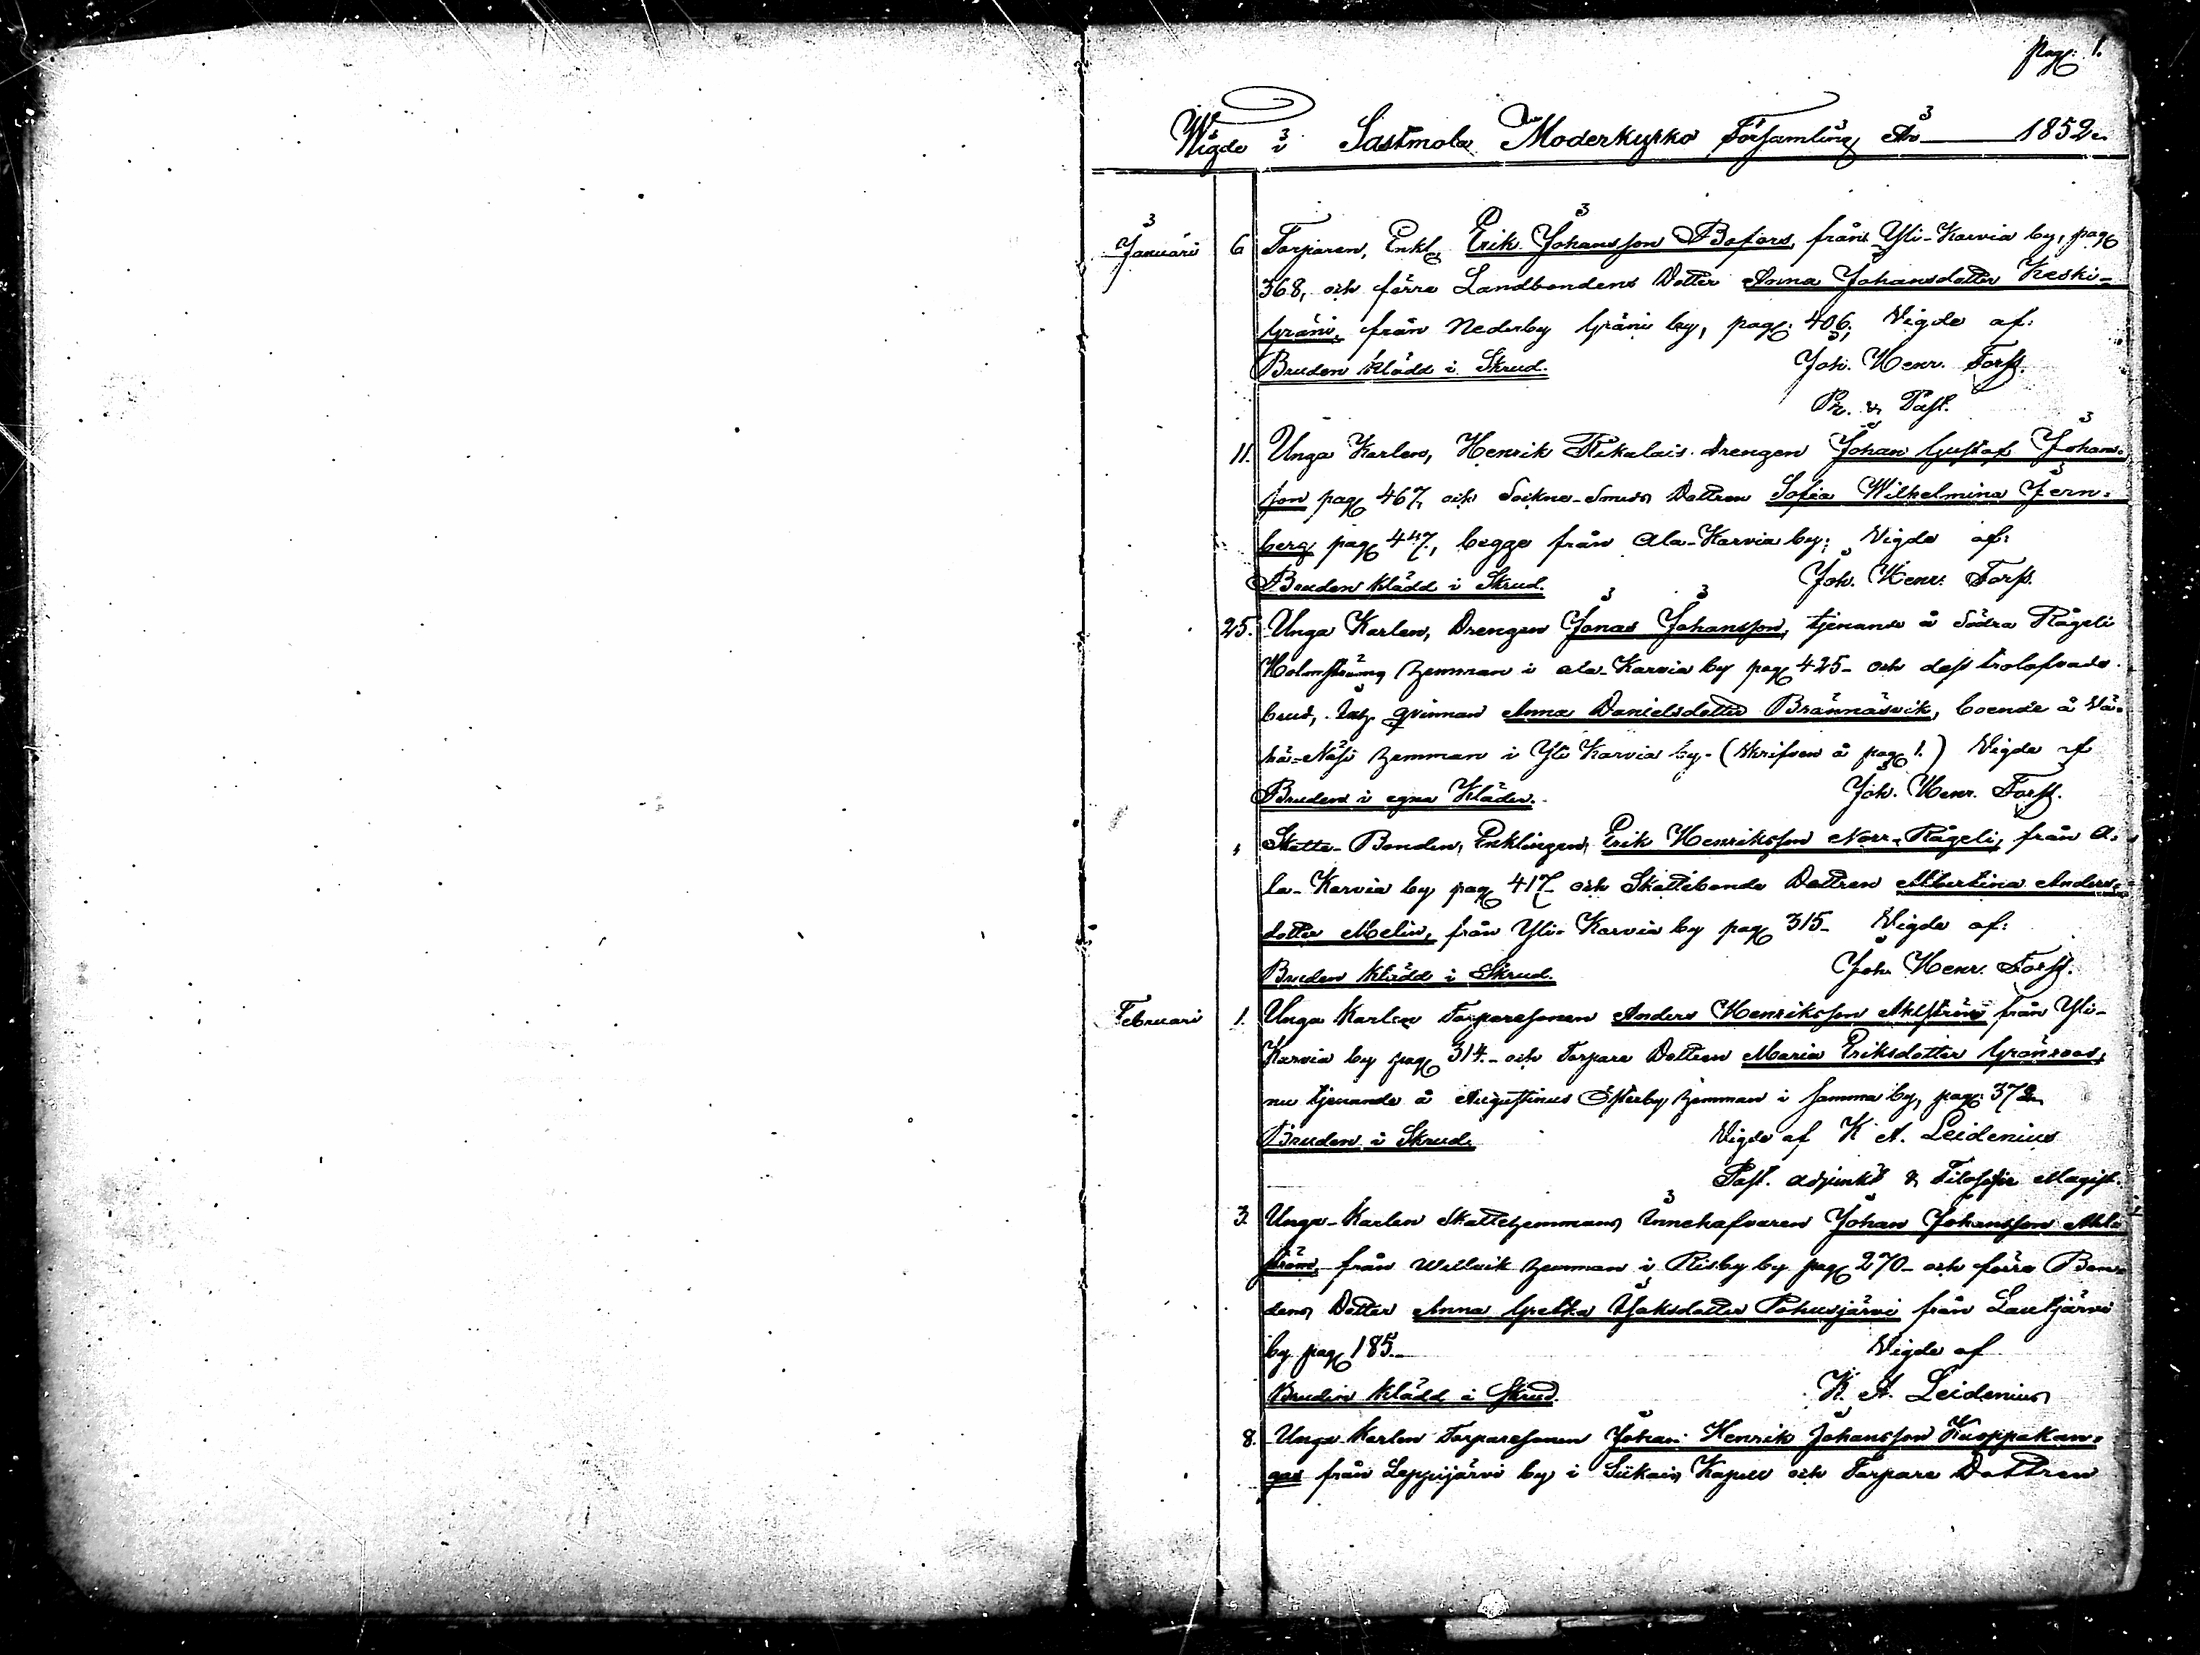 pag. 1.
Wigde i Sastmola Moderkyrko Församling År 1852.
Januari 6 Torparen, Enkl. Erik Johansson Bofors, från Yli-Karvia by, pag
368, och förre Landbondens Dotter Anna Johansdotter Keski-
Gräni, från Nederby Gräni by, pag. 406; Vigde af:
Bruden klädd i Skrud. Joh. Henr. Forss.
Pr. & Past.
11. Unga Karlen, Henrik Rikalais drengen Johan Gustaf Johans-
son pag 467, och Sockne-Smeds Dottren Sofia Wilhelmina Jern-
berg pag 447, begge från Ala-Karvia by; Vigde af:
Bruden klädd i Skrud. Joh. Henr. Forss.
25. Unga Karlen, Drengen Jonas Johansson, tjenande å Södra Rågeli
Holmström hemman i Ala-Karvia by pag 425- och dess trolofvade
brud, qvinnan Anna Danielsdotter Brännäsvik, boende å Vä-
hä-Näsi hemman i Yli Karvia by. (Skrifven å pag 1.) Vigde af
Bruden i egna Kläder. Joh. Henr. Forss.
Skatte-Bonden, Enklingen, Erik Henriksson Norr-Rågeli, från A-
la-Karvia by pag 417 och Skattebonde Dottren Albertina Anders-
dotter Melin, från Yli-Karvia by pag 315- Vigde af:
Bruden klädd i Skrud. Joh. Henr. Forss.
Februari 1. Unga Karlen Torparesonen Anders Henriksson Ahlström från Yli-
Karvia by pag 314.- och Torpare Dottren Maria Eriksdotter Grönroos,
nu tjenande å Augustinus Österby hemman i samma by, pag. 372
Bruden i Skrud. Vigde af K A. Leidenius
Past. adjunkt & Filosofie Magist.
3. Unga Karlen Skattehemmans Innehafvaren Johan Johansson Ahl-
ström, från Willvik hemman i Risby by pag 270- och förre Bon-
dens Dotter Anna Greta Isaksdotter Pohusjärvi från Lautjärvi
by pag 185.- Vigde af
Bruden klädd i Skrud. K. A. Leidenius
8. Unga Karlen Torparesonen Johan Henrik Johansson Kuoppakan-
gas från Leppijärvi by i Siikais Kapell och Torpare Dottren